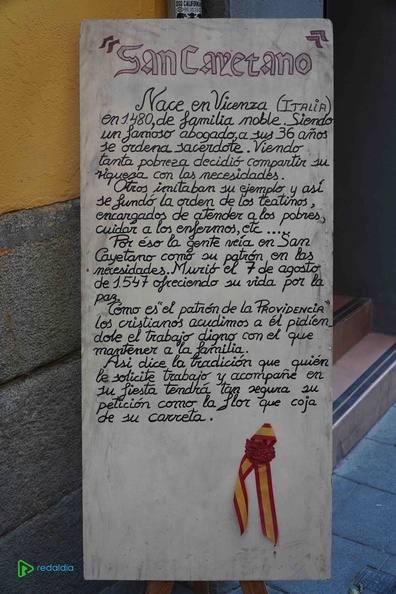 DOG CALIFORNIA
"San Cayetano"
Nace en Vicenza (ITALIA)
en 1480, de familia noble. Siendo
un famoso abogado, a sus 36 años
se ordena sacerdote. Viendo
tanta pobreza decidió compartir su
riqueza con las necesidades.
Otros imitaban su ejemplo y así
se fundó la orden de los teatinos,
encargados de atender a los pobres,
cuidar a los enfermos, etc .....
Por eso la gente veía en San
Cayetano como su patrón en las
necesidades. Murió el 7 de agosto
de 1547 ofreciendo su vida por la
paz.
Cómo es "el patrón de la PROVIDENCIA"
los cristianos acudimos a él pidien
dole el trabajo digno con el que
mantener a la familia.
Asi dice la tradición que quién
le solicite trabajo y acompañe en
su fiesta tendrá tan segura su
petición como la flor que coja
de su carreta.
redaldia